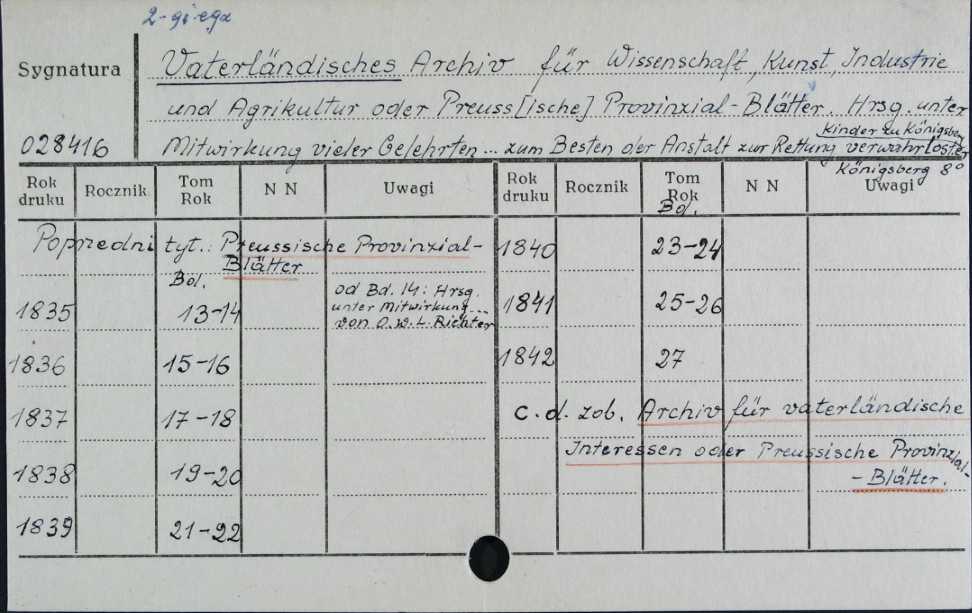 2-gi egz
Sygnatura
Vaterländisches Archiv für Wissenschaft, Kunst, Industrie
und Agrikultur oder Preuss[ische] Provinzial-Blätter. Hrsg. unter
028416
Mitwirkung vieler Gelehrten ... zum Besten der Anstalt zur Rettung verwahrloster
Kinder zu Königsberg
Königsberg 8°
Rok druku Rocznik Tom Rok N N Uwagi Rok druku Rocznik Tom Rok N N Uwagi
Bd.
Poprzedni tyt.: Preussische Provinzial-
Blätter
1840 23-24
Bd.
1835 13-14 od Bd. 14: Hrsg.
unter Mitwirkung ...
von O.W.L. Richter
1841 25-26
1836 15-16
1842 27
1837 17-18
c.d. zob. Archiv für vaterländische
Interessen oder Preussische Provinzial-
-Blätter.
1838 19-20
1839 21-22